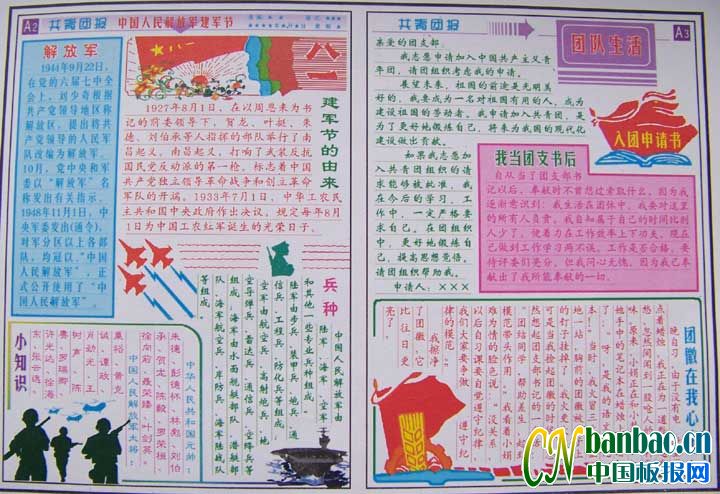 A2
共青团报
中国人民解放军建军节
解放军
1944年9月22日,
在党的六届七中全
会上,刘少奇根据
共产党领导地区称
解放区,提出将共
产党领导的人民军
队改编为解放军。
10月,党中央和军
委以"解放军"名
称发出有关指示。
1948年11月1日,中
央军委发出(通令),
对军分区以上各部
队,均冠以"中国
人民解放军",正
式公开使用了"中
国人民解放军"。
八一
建军节的由来
1927年8月1日,在以周恩来为书
记的前委领导下,贺龙、叶挺、朱
德、刘伯承等人指挥的部队举行了南
昌起义,南昌起义,打响了武装反抗
国民党反动派的第一枪,标志着中国
共产党独立领导革命战争和创立革命
军队的开端。1933年7月1日,中华工农民
主共和国中央政府作出决议,规定每年8月
1日为中国工农红军诞生的光荣日子。
兵种
中国人民解放军由
陆军、海军、空军
和其他一些专业兵种组成。
陆军由步兵、装甲兵、炮兵、通
信兵、工程兵、防化兵等组成,
空军由航空兵、高射炮兵、地
空导弹兵、雷达兵、通信兵等
组成,海军由水面舰艇部队、潜艇部
队、海军航空兵、岸防兵、海军陆战队
等组成。
小知识
中华人民共和国元帅:
朱德、彭德怀、林彪、刘伯
承、贺龙、陈毅、罗荣桓、
徐向前、聂荣臻、叶剑英。
中国人民解放军大将:
粟裕、黄克
诚、谭政、
肖劲光、王
树声、陈
赓、罗瑞卿、
许光达、徐海
东、张云逸。
共青团报
团队生活
A3
亲爱的团支部:
我志愿申请加入中国共产主义青
年团,请团组织考虑我的申请。
展望未来,祖国的前途是光明美
好的,我要成为一名对祖国有用的人,成为
建设祖国的劳动者。我申请加入共青团,是
为了更好地锻炼自己,将来为我国的现代化
建设做出贡献。
如果我志愿加
入共青团组织的请
求能够被批准,我
在今后的学习、工
作中,一定严格要
求自己,在团组织
中,更好地锻炼自
己,提高思想觉悟。
请团组织帮助我。
申请人:×××
入团申请书
我当团支书后
自从当了团支部书
记以后,奉献时不曾想过索取什么,因为我
逐渐意识到:我生活在团体中,我要对这里
的所有人负责。我自知属于自己的时间比别
人少了,便着力在工作效率上下功夫,现在
已做到工作学习两不误。工作是否合格,要
待评委们亮分,但我问心无愧,因为我已奉
献出了我所能奉献的一切。
团徽在我心
CNbanbao.cn
中国板报网